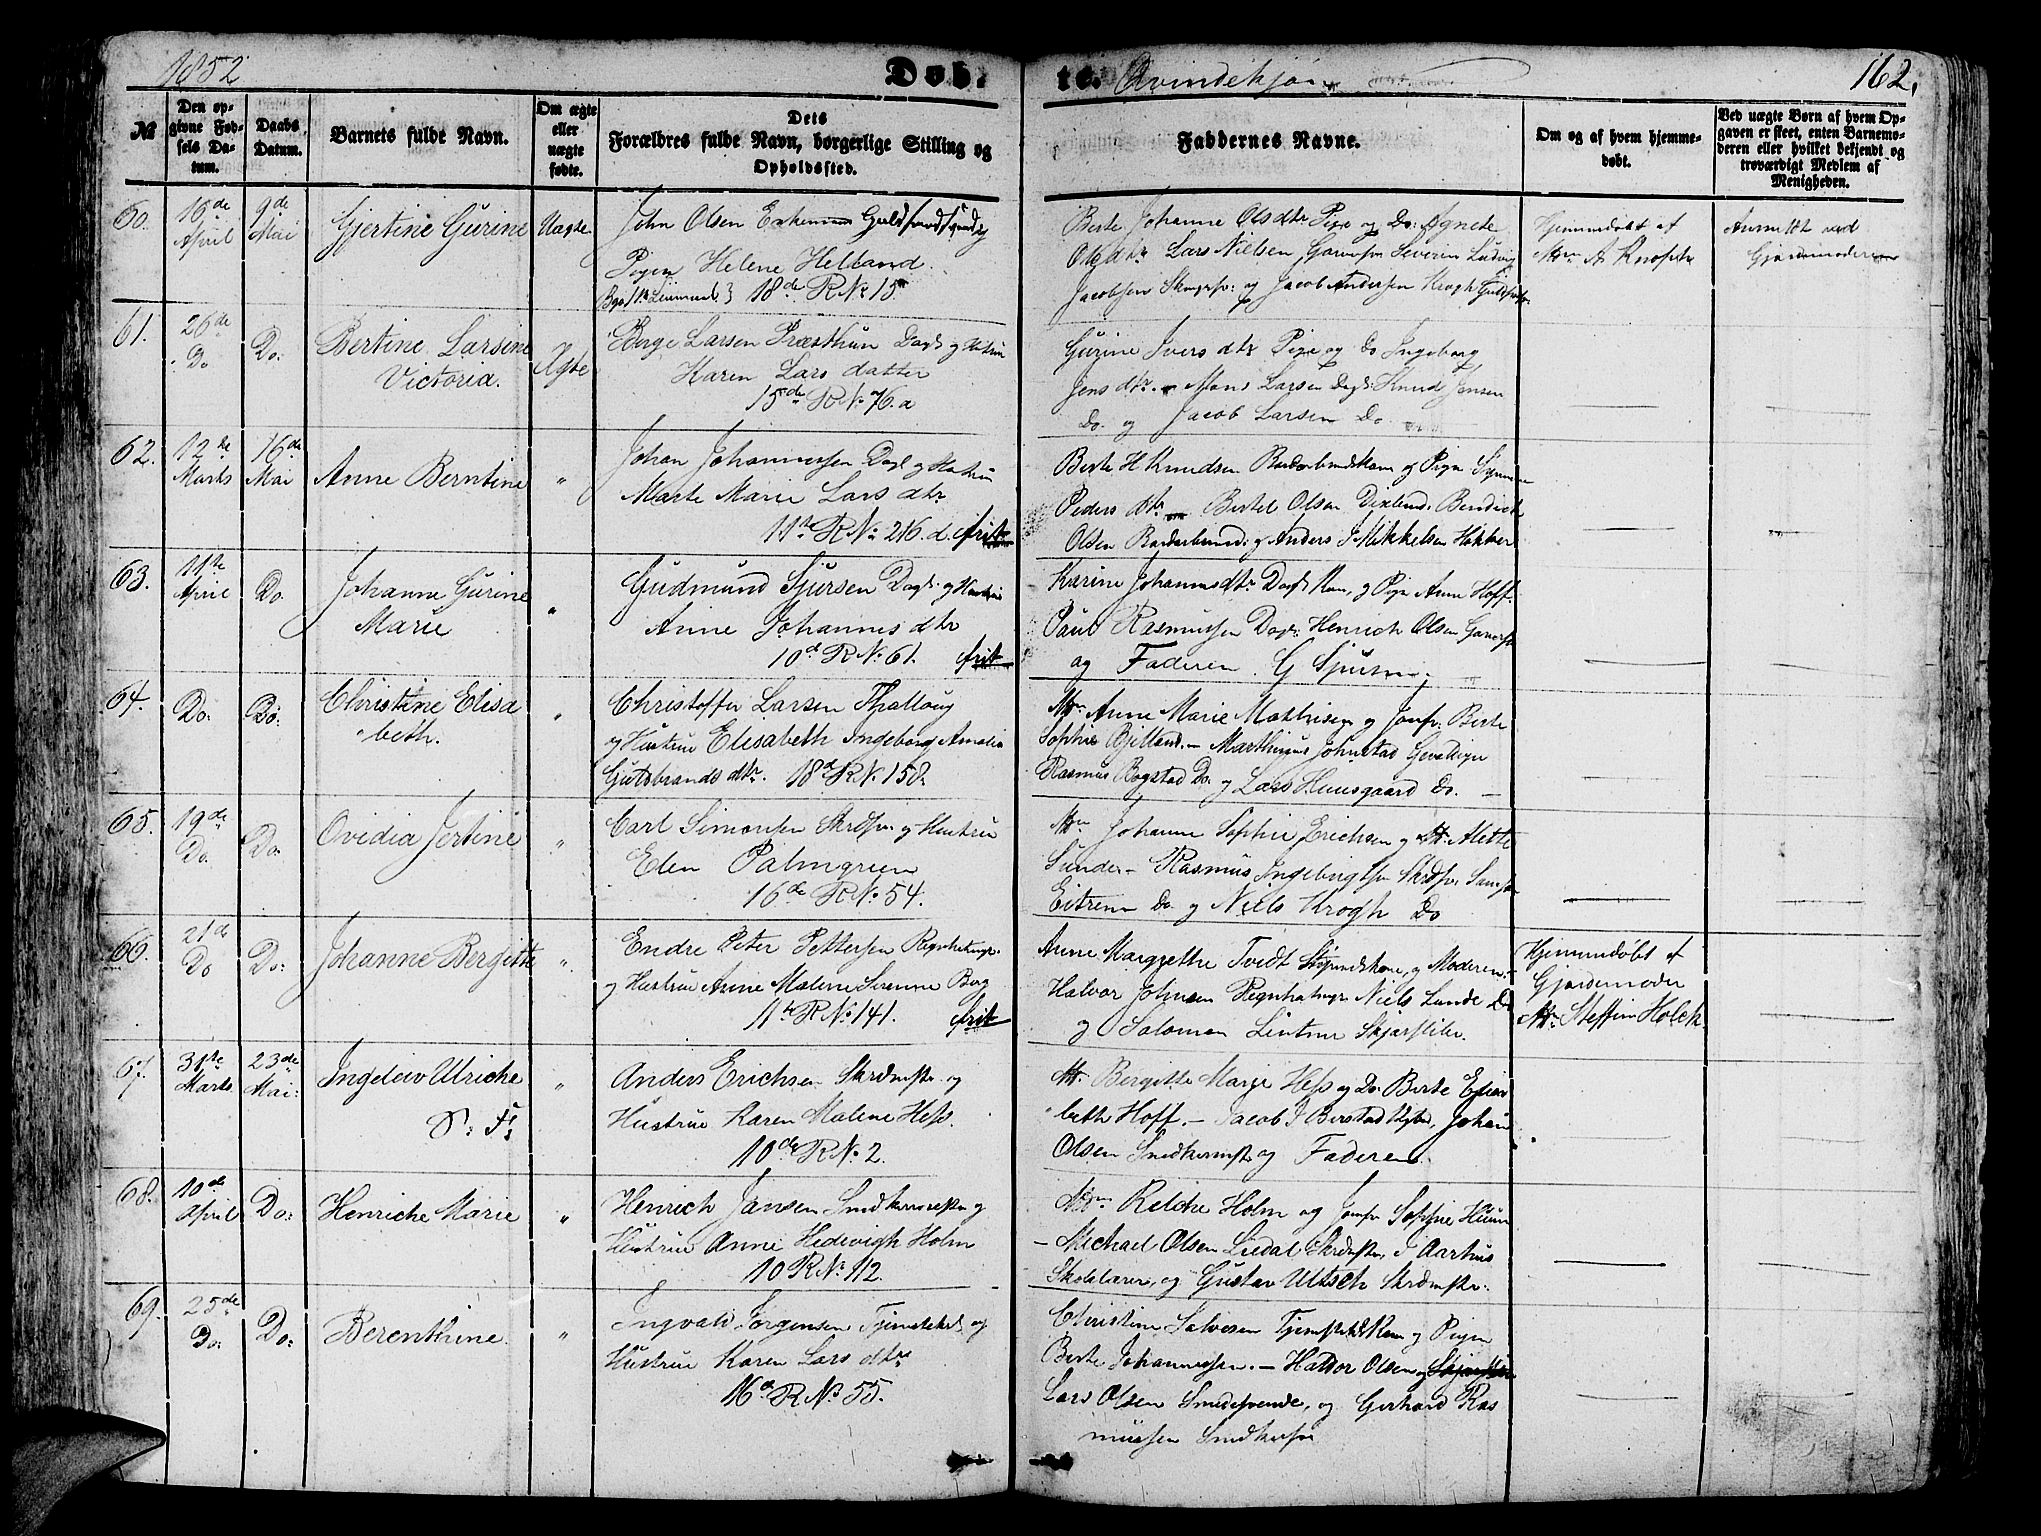 1852
Døb-
te. Qvindekjøn
162.
№
Den op-
givne Fød-
sels Da-
tum.
Daabs
Datum.
Barnets fulde Navn.
Om ægte
eller
uægte
fødte.
Dets
Forældres fulde Navn, borgerlige Stilling og
Opholdssted.
Faddernes Navne.
Om og af hvem hjemme-
døbt.
Ved uægte Børn af hvem Op-
gaven er skeet, enten Barnemo-
deren eller hvilket bekjendt og
troværdigt Medlem af
Menigheden.
60.
16de
April
9de
Mai
Gjertine Gurine
Uægte
John Olsen
Pigen Helene Helland
18de R No 15
Berte Johanne Olsdtr Pige og Do: Agnete
Olsdtr Lars Nielsen Severin Ludvig
Jacobsen og Jacob Andersen Krogh
Hjemmedøbt af
A Knopff
Anmeldt ved
Gjordemoderen
61.
26de
Do
Do:
Bertine Larsine
Victoria.
Ægte
Børge Larsen Præsthun Dagl og Hustru
Karen Lars datter
15de R No 76.a
Gurine Ivers dtr Pige og Do Ingeborg
Jens dtr. Mons Larsen Dagl: Knud Jensen
Do. og Jacob Larsen Do.
62.
12te
Marts
16de
Mai
Anne Berntine
"
Johan Johannessen Dagl og Hustru
Marte Marie Lars dtr
11te R No: 216. d. frit
Berte H Knudsen og Pige
Peders dtr Bertel Olsen Bendick
Olsen og Anders J Mikkelsen Høkker
63.
11te
April
Do.
Johanne Gurine
Marie
"
Gudmund Sjursen Dagl: og Hustru
Anne Johannes dtr
10d R No: 61. frit
Karine Johannesdtr Dagl Kone, og Pige Anne Hoff.
Paul Rasmussen Dagl: Henrich Olsen
og Faderen G Sjursen
64.
Do:
Do:
Christine Elisa
beth.
"
Christoffer Larsen Thalloug
og Hustrue Elisabeth Ingeborg Amalia
Gulsbrands dtr. 18d R No 158.
Anne Marie Mathisen og Jomfr: Berte
Sophie Bjelland. – Marthinus Johnstad
Rasmus Bogstad Do. og Lars Huusgaard Do. –
65.
19de
Do.
Do.
Ovidia Jertine
"
Carl Simonsen Skrdsv. og Hustrue
Elen Palmgrien
16de R No: 54.
Johanne Sophie Erichsen og Mette
Sunde – Rasmus Ingebrigtsen
Eitrem Do og Niels Krogh Do
66.
21de
Do
Do:
Johanne Bergitte
"
Endre Peter Pettersen
og Hustrue Anne Malene Sorenne Berg
11te R No: 141. frit
Anne Margrethe Tvedt og Moderen –
Halvor Johnsen Niels Lunde Do
og Salomon Lintner
Hjemmedøbt af
Gjordemoder
Steffine Holck
67.
31te
Marts
23de
Mai:
Ingeleiv Ulriche
S: F:
"
Anders Erichsen Skrdmstr. og
Hustrue Karen Malene Hess.
10de R No. 2.
Bergitte Marie Hess og Do. Berte Elisa
beth Hoff. – Jacob J Berstad Johan
Olsen Snedkermstr og Faderen
68.
10de
April
Do:
Henriche Marie
"
Henrich Jansen Snedkermester og
Hustrue Anne Hedevigh Holm
10 R No: 112.
Holm og Jomfr Sophie
– Michael Olsen Liedal Skrdmstr, J Aarhus
Skolelærer, og Gustav Ultsch Skrdmstr.
69.
25de
Do:
Do:
Berenthine.
"
Ingvald Jørgensen og
Hustrue Karen Lars dtr
16d R No 55.
Christine Salvesen og Pigen
Berte Johannessen. – Halvor Olsen og
Lars Olsen Smedesvende, og Gerhard Ras
mussen